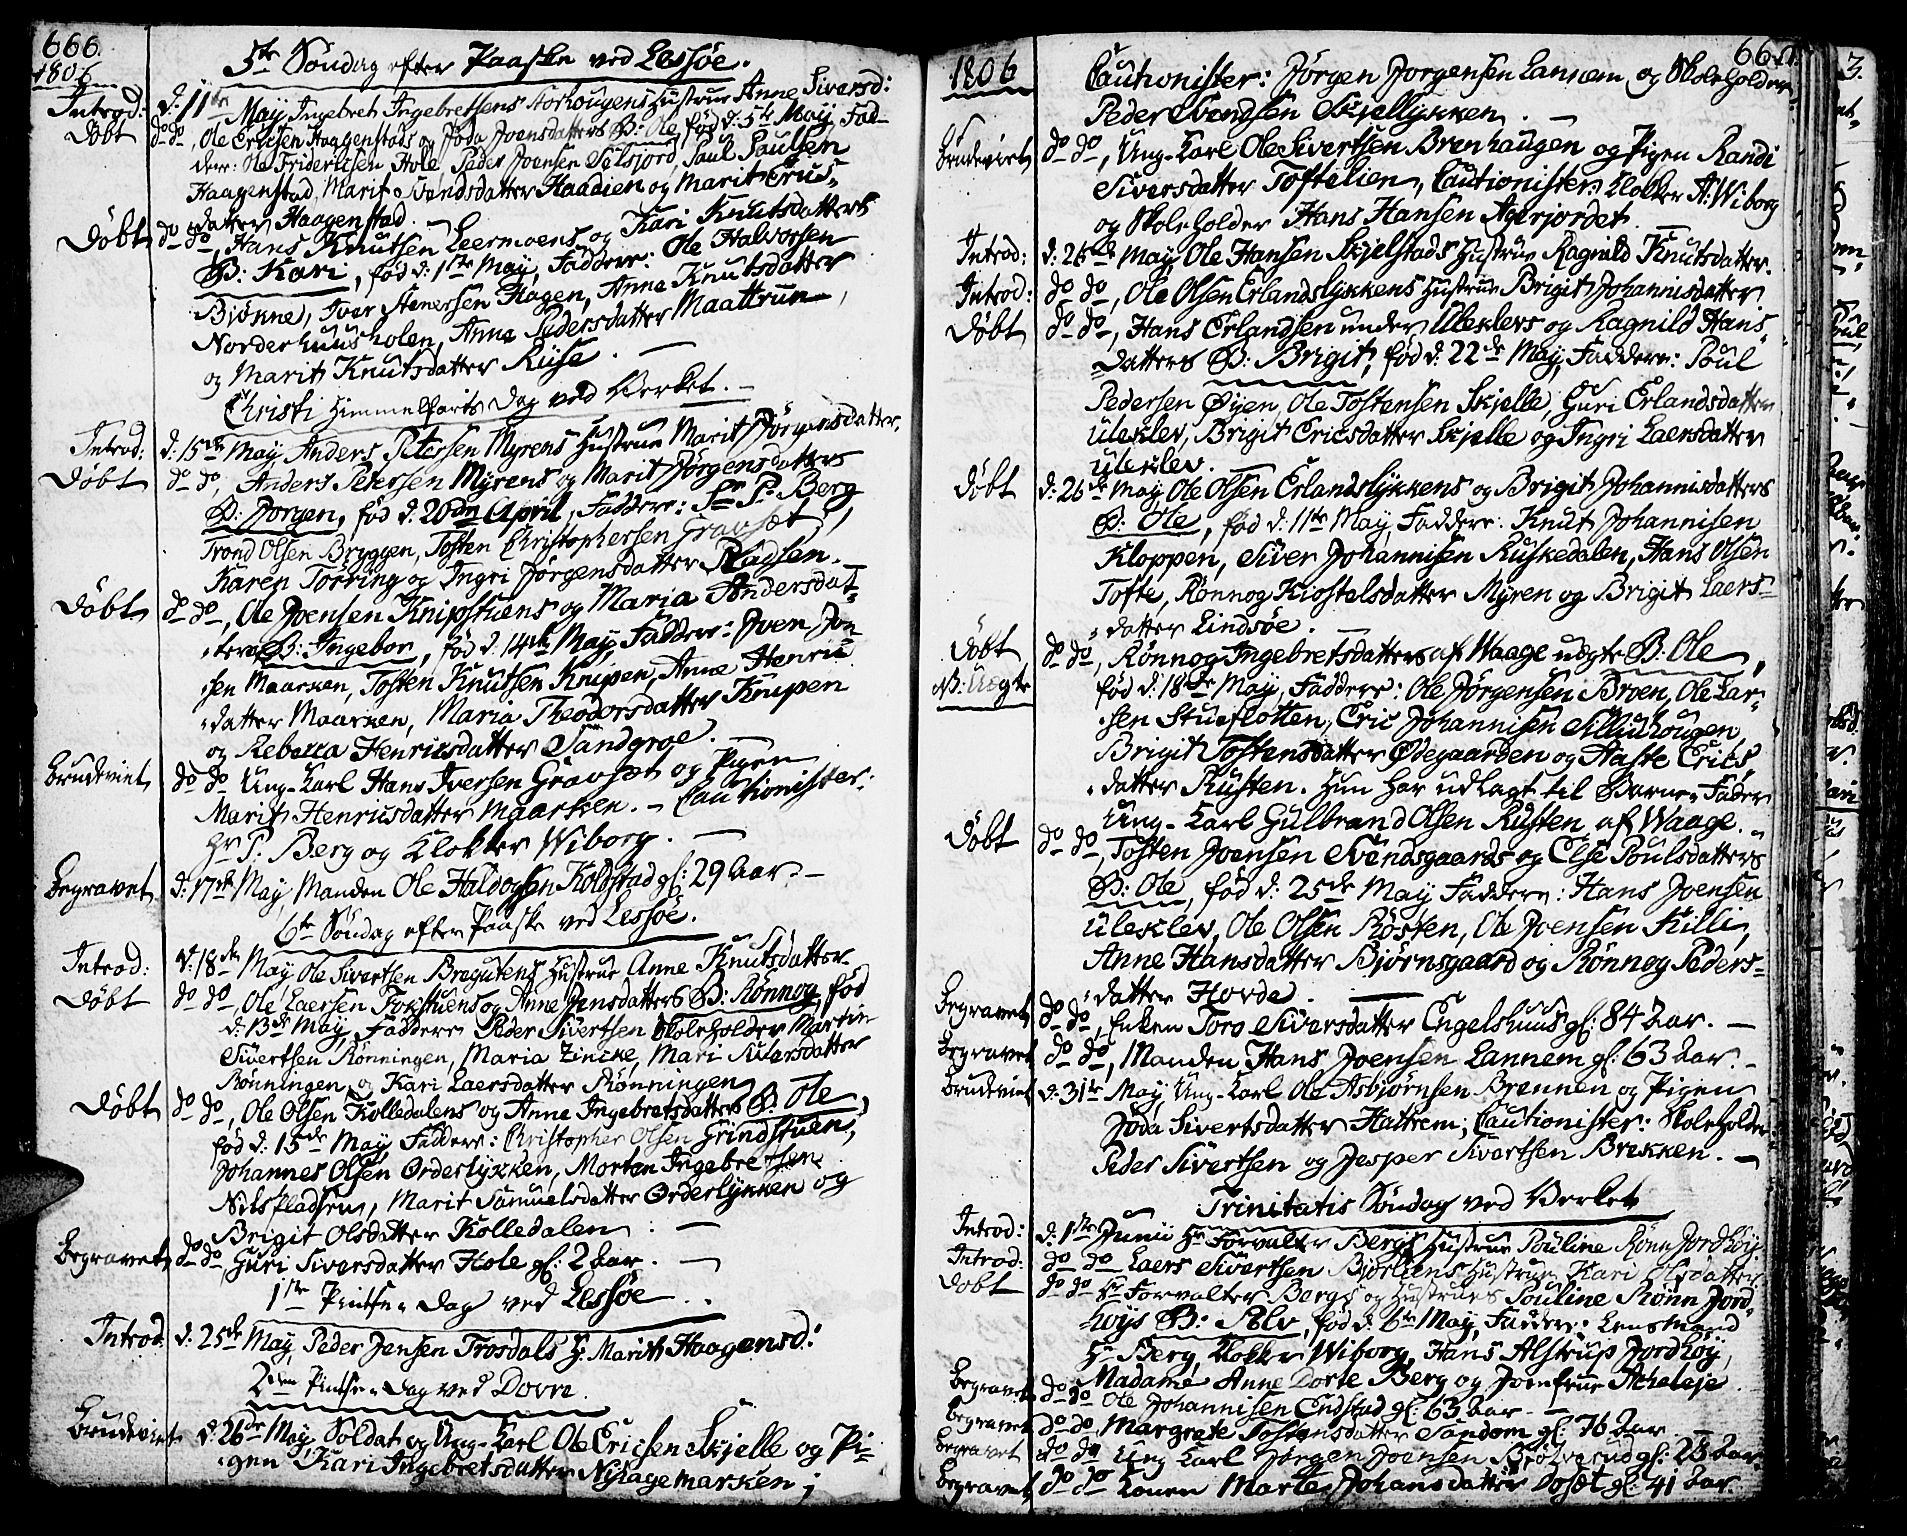 666.
1806
5te Søndag efter Paaske ved Lessøe.
Introd: d: 11te May Ingebret Ingebretsens Storhougens Hustrue Anne Siversd:
Døbt do do, Ole Ericsen Haagenstads og Jøda Joensdatters B: Ole, fød d: 5te May, Fad-
dere: Ole Friderichsen Hole, Peder Joensen Selsjord, Paul Paulsen
Haagenstad, Marit Svendsdatter Haadien og Marit
datter Haagenstad. —
Døbt do do, Hans Knutsen Leermoens og Kari Knutsdatters
B: Kari, fød d: 1ste May, Faddere: Ole Halvorsen
Biøkne, Iver Stenersen Hagen, Anne Knutsdatter
Norderhuusholen, Anne Pedersdatter Maattrum,
og Marit Knutsdatter Riise. —
Christi Himmelfarts Dag ved Verket. —
Introd: d: 15de May Anders Petersen Myrens Hustrue Marit Jørgensdatter.
Døbt do do, Anders Petersen Myrens og Marit Jørgensdatters
B: Jørgen, fød d: 20de April, Faddere: Hr P: Berg
Trond Olsen Bryggen, Tosten Christophersen Gravsæt,
Karen Tørring og Ingri Jørgensdatter Pladsen.
Døbt do do, Ole Joensen Knipstuens og Maria Andersdat-
ters B: Ingebor, fød d: 14de May, Faddere: Joen Jon-
sen Maarken, Tosten Knutsen Knipen, Anne Henric
datter Maarken, Maria Theodorsdatter Knipen
og Rebecca Henricsdatter Sandgroe. —
Brudeviet do do Ung-Karl Hans Iversen Gravsæt og Pigen
Marit Henricsdatter Maarken. — Cautionister:
Hr P: Berg og Klokker Wiborg. —
Begravet d: 17de May, Manden Ole Haldogsen Kolstad gl: 29 Aar. —
6te Søndag efter Paaske ved Lessøe.
Introd: d: 18de May, Ole Sivertsen Bregutens Hustrue Anne Knutsdatter
Døbt do do, Ole Laersen Tofstuens og Anne Jensdatters B: Rønnog, fød
d: 13de May, Faddere Peder Sivertsen Skoleholder Martin
Sivertsen Rønningen, Maria Zincke, Mari Siversdatter
Rønningen og Kari Laersdatter Rønningen
Døbt do do, Ole Olsen Kolledalens og Anne Ingebretsdatters B: Ole,
fød d: 15de May, Faddere: Christopher Olsen Grindstuen,
Johannes Olsen Orderlykken, Morten Ingebretsen
Nilspladsen, Marit Samuelsdatter Orderlykken og
Brigit Olsdatter Kolledalen. —
Begravet do do, Guri Siversdatter Hole gl: 2 Aar. —
1ste Pintse-Dag ved Lessøe.
Introd: d: 25de May, Peder Jensen Trosdals H: Marith Haagensd:
2den Pintse-Dag ved Dovre.
Brudeviet d: 26de May Soldat og Ung-Karl Ole Ericsen Skjelle og Pi-
gen Kari Ingebretsdatter Nylagemarken;
1806
667.
Cautionister: Jørgen Jørgensen Lannem og Skoleholder
Peder Svendsen Skjellykken. —
Brudeviet do do, Ung-Karl Ole Sivertsen Brenhaugen og Pigen Randi
Siversdatter Toftelien, Cautionister: Klokker A: Wiborg
og Skoleholder Hans Hansen Agerjordet.
Introd: d: 26de May Ole Hansen Skjelstads Hustrue Ragnild Knutsdatter.
Introd: do do, Ole Olsen Erlandslykkens Hustrue Brigit Johannisdatter
Døbt do do, Hans Erlandsen under Uleklevs og Ragnild Hans-
datters B: Brigit, fød d: 22de May, Faddere: Poul
Pedersen Øyen, Ole Tostensen Skjelle, Guri Erlandsdatter
Uleklev, Brigit Ericsdatter Skjelle og Ingri Laersdatter
Uleklev. —
Døbt d: 26de May Ole Olsen Erlandslykkens og Brigit Johannisdatters
B: Ole, fød d: 11te May, Faddere: Knut Johannisen
Kloppen, Siver Johannisen Ruskedalen, Hans Olsen
Tofte, Rønnog Kiostelsdatter Myren og Brigit Laers-
datter Lindsøe. —
Døbt do do, Rønnog Ingebretsdatters af Waage uægte B: Ole,
B: Uægte fød d: 18de May, Faddere: Ole Jørgensen Broen, Ole Lar-
sen Stueflotten, Eric Johannisen Silliuhougen,
Brigit Tostensdatter Ødegaarden og Aaste Erics
datter Rusten. Hun har udlagt til Barne-Fader
Ung-Karl Gulbrand Olsen Rusten af Waage.
Døbt do do, Tosten Joensen Svendsgaards og Else Poulsdatters
B: Ole, fød d: 25de May, Faddere: Hans Joensen
Uleklev, Ole Olsen Røsten, Ole Joensen Killi,
Anne Hansdatter Bjørnsgaard og Rønnog Peders-
datter Hovde. —
Begravet do do, Enken Toro Siversdatter Engelshuus gl: 84 Aar. —
Begravet do do, Manden Hans Joensen Lannem gl: 63 Aar. —
Brudeviet d: 31te May Ung-Karl Ole Asbjørnsen Brennen og Pigen
Jøda Sivertsdatter Hattrem; Cautionister: Skoleholder
Peder Sivertsen og Jesper Sivertsen Brekken. —
Trinitatis Søndag ved Verket
Introd: d: 1ste Junii Hr Forvalter Bergs Hustrue Pouline Rønn Jordhøy.
Introd: do do Laers Sivertsen Bjørliens Hustrue Kari Olsdatter
Døbt do do Hr Forvalter Bergs og Hustrues Pouline Rønn Jord
høys B: Pelv, fød d: 6te May, Faddere: Lensmand
Hr Berg, Klokker Wiborg, Hans Alstrup Jordhøy,
Madame Anne Dorte Berg og Jomfrue Acheleje.
Begravet do do Ole Johannisen Endstad gl: 63 Aar. —
Begravet do do, Margrete Tostensdatter Sandom gl: 76 Aar
Begravet do do Ung Karl Jørgen Joensen Brølverud gl: 28 Aar
Begravet do do Konen Marte Johansdatter Doset gl: 41 Aar.